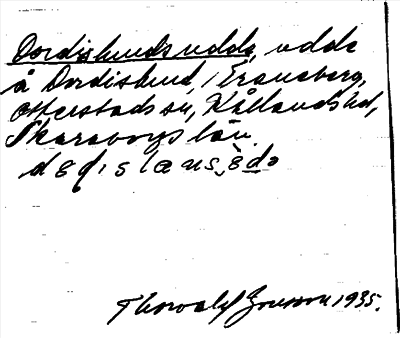 Dordislundsudde, udde
å Dordislund, i Eraneberg,
Otterstads sn, Kållands hd,
Skaraborgs län.
Thorvald Jonsson 1935.